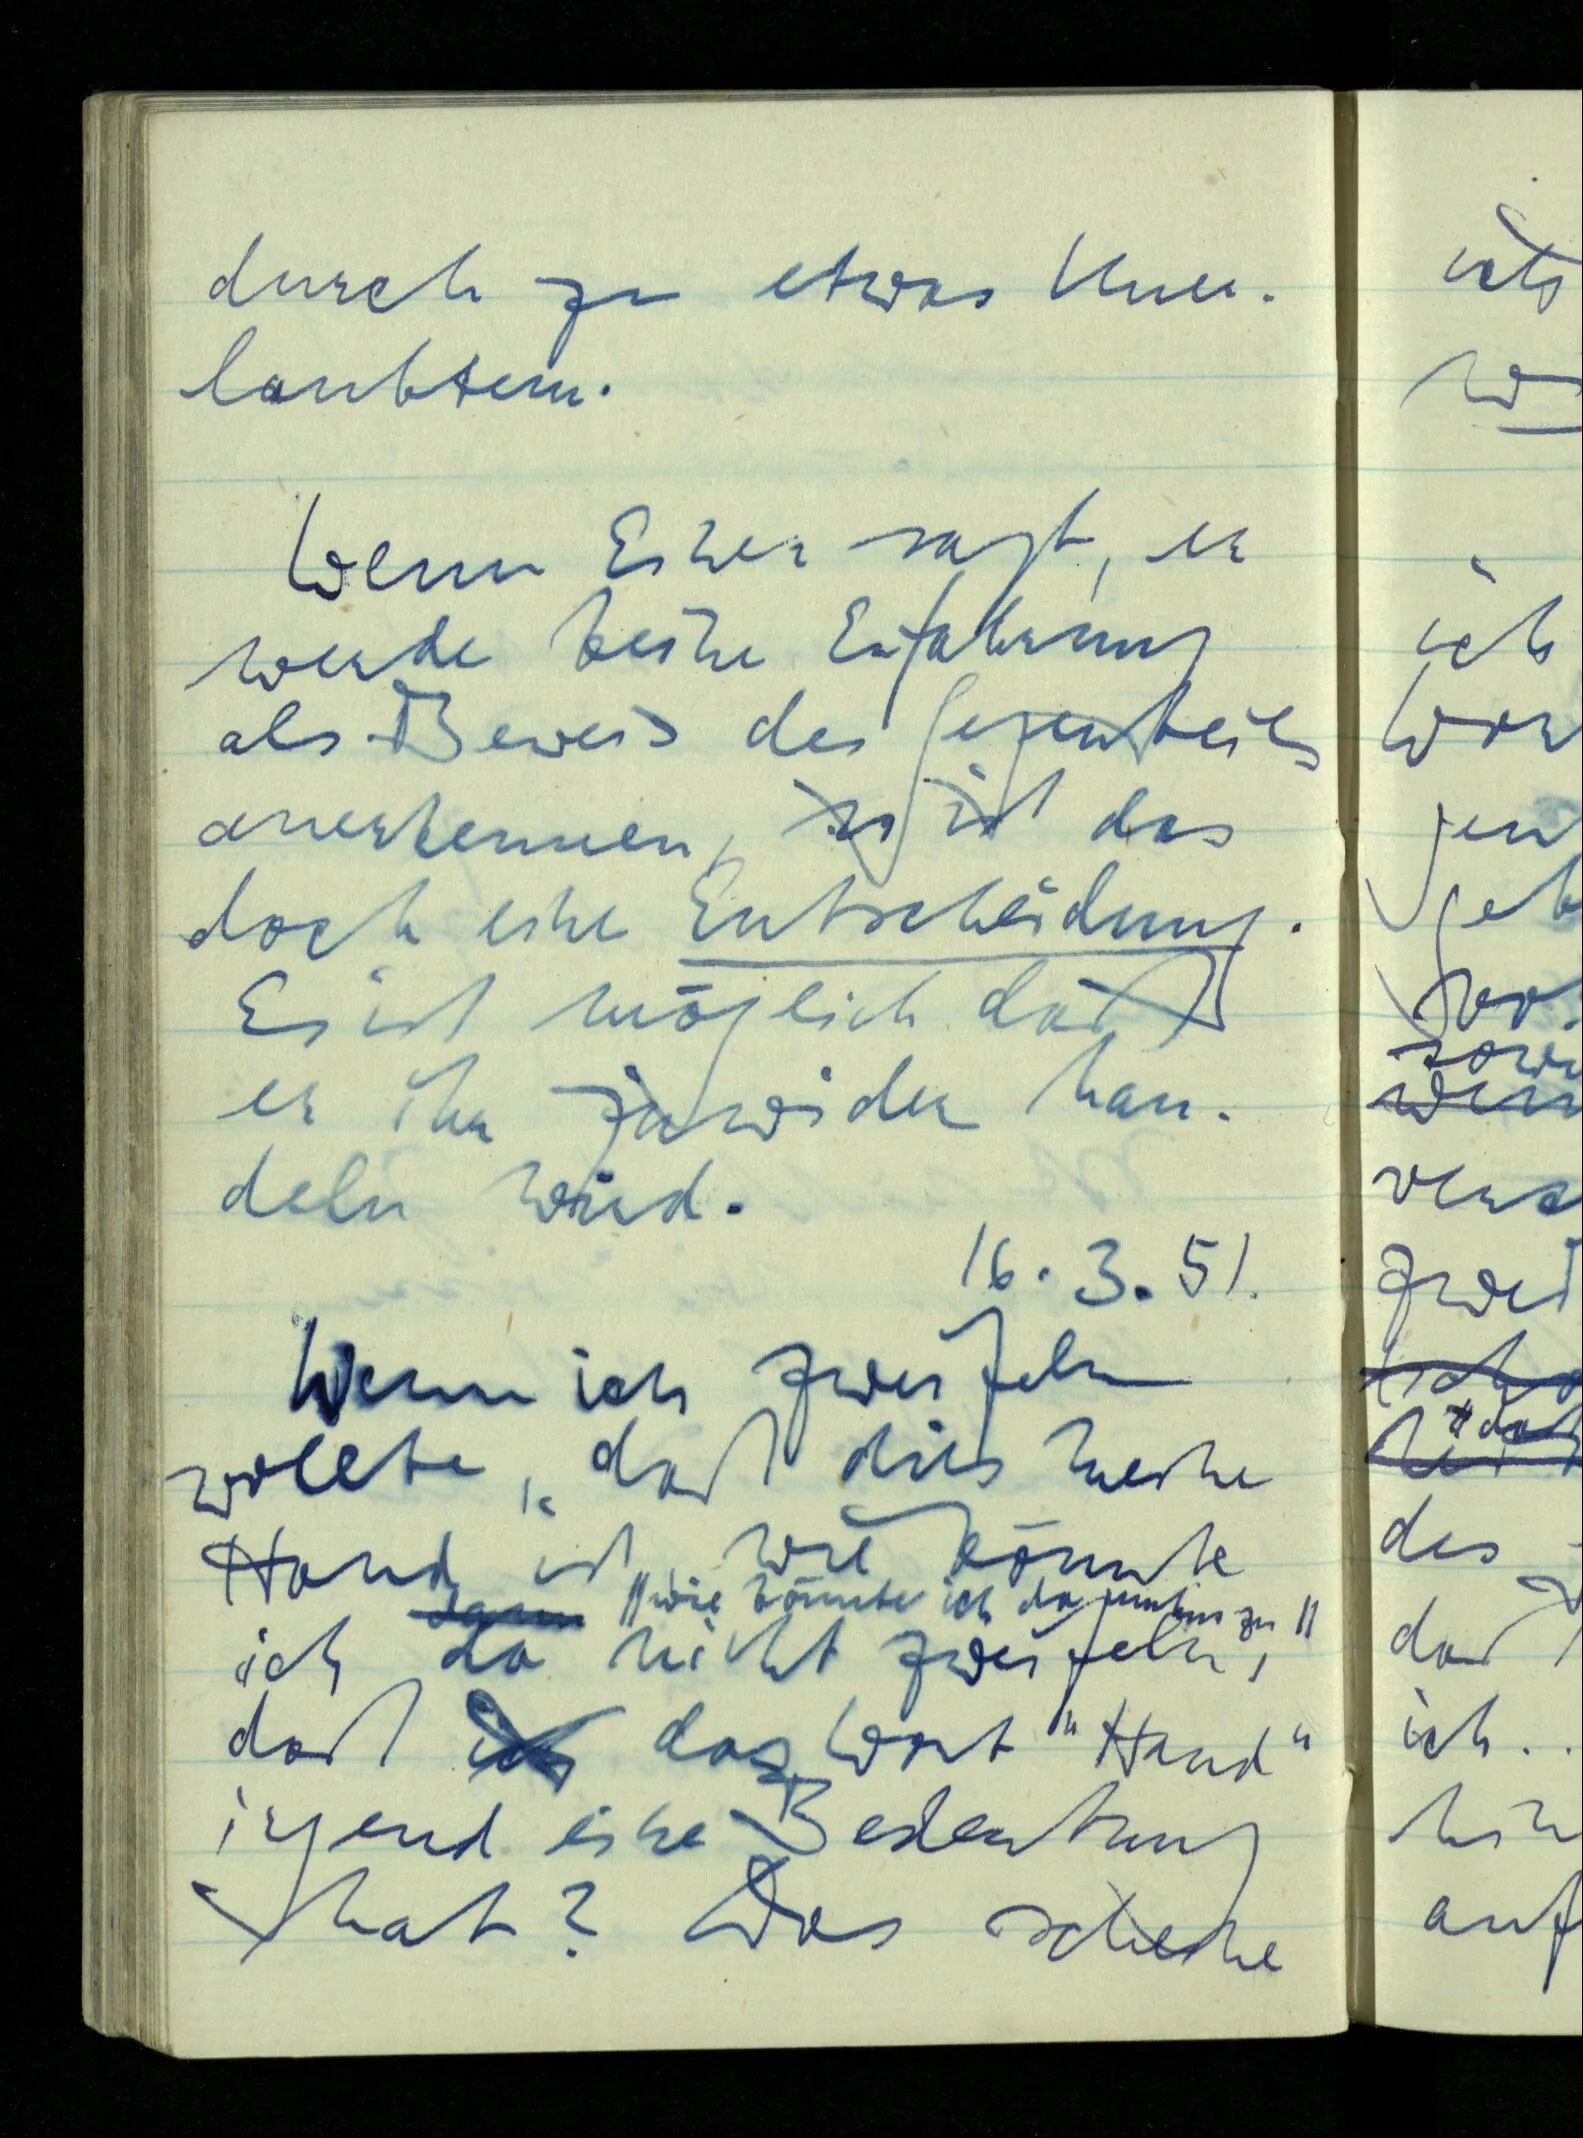 durch zu etwas Uner-
laubtem.
Wenn Einer sagt, er
werde keine Erfahrung
als Beweis des Gegenteils
anerkennen, so ist das
doch eine Entscheidung.
Es ist möglich daß
er ihr zuwider han-
deln wird.
16.3.51.
Wenn ich zweifeln
wollte, daß dies meine
Hand ist, wie könnte
dann "wie könnte ich da umhin zu"
ich da nicht zweifeln,
daß das Wort "Hand"
irgend eine Bedeutung
hat? Das scheine
ich
gen
des
daß
ich..
auf